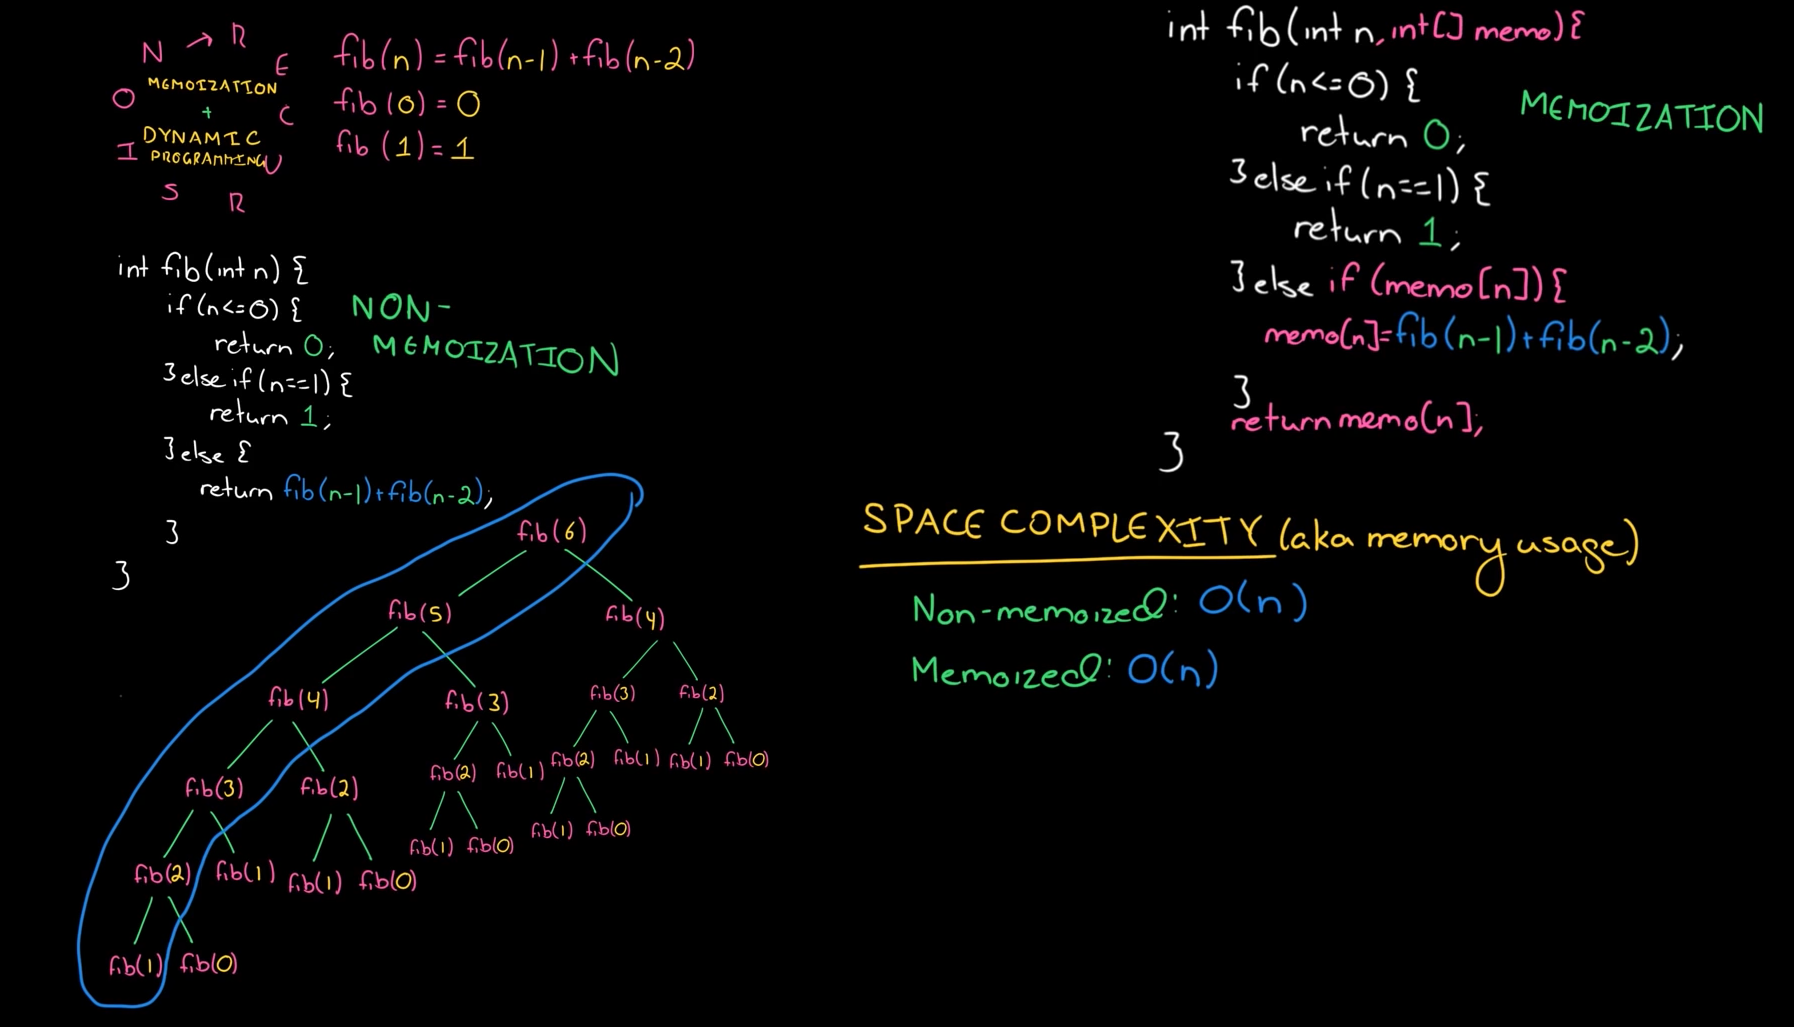 RECURSION
MEMOIZATION
+
DYNAMIC
PROGRAMMING
fib(n) = fib(n-1) + fib(n-2)
fib (0) = 0
fib (1) = 1
int fib(int n) {
if(n<=0) {
return 0;
}else if(n==1) {
return 1;
}else {
return fib(n-1)+fib(n-2);
}
}
NON-
MEMOIZATION
fib(6)
fib(5) fib(4)
fib(4) fib(3) fib(3) fib(2)
fib(2) fib(1) fib(2) fib(1) fib(1) fib(0)
fib(3) fib(2)
fib(1) fib(0) fib(1) fib(0)
fib(2) fib(1) fib(1) fib(0)
fib(1) fib(0)
int fib(int n, int[] memo){
if (n<=0) {
return 0;
}else if(n==1) {
return 1;
}else if (memo[n]){
memo[n]=fib(n-1)+fib(n-2);
}
return memo[n];
}
MEMOIZATION
SPACE COMPLEXITY (aka memory usage)
Non-memoized: O(n)
Memoized: O(n)